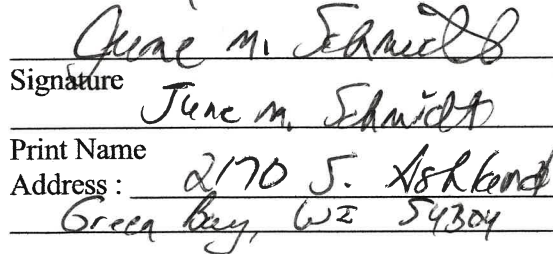 June M. Schmidt
Signature
June M. Schmidt
Print Name
Address : 2170 S. Ashland
Green Bay, WI 54304